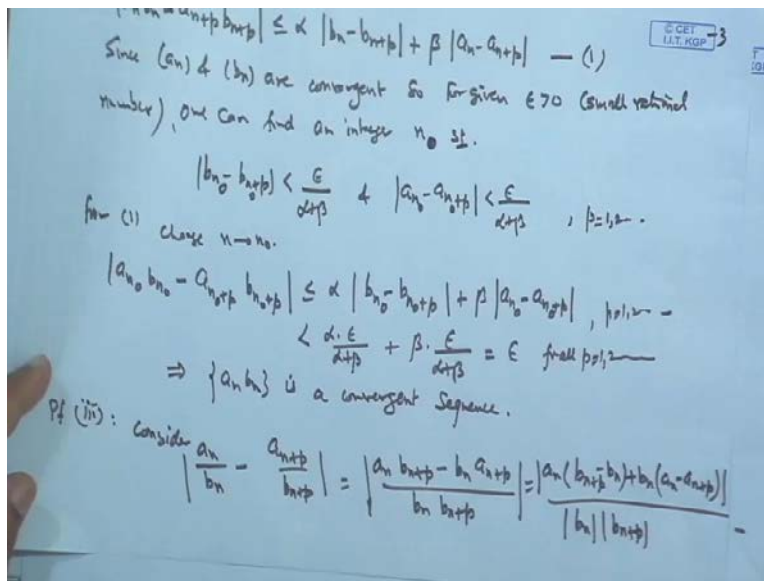 a_{n+p} b_{n+p}| ≤ α |b_n - b_{n+p}| + β |a_n - a_{n+p}| — (1)
© CET
I.I.T. KGP
-3
Since (a_n) & (b_n) are convergent so for given ε>0 (small rational
number), one can find an integer n_0 st.
|b_{n_0} - b_{n_0+p}| < ε/(α+β) & |a_{n_0} - a_{n_0+p}| < ε/(α+β) , p=1,2—.
from (1) change n→n_0.
|a_{n_0} b_{n_0} - a_{n_0+p} b_{n_0+p}| ≤ α |b_{n_0} - b_{n_0+p}| + β |a_{n_0} - a_{n_0+p}| , p=1,2—
< α·ε/(α+β) + β·ε/(α+β) = ε for all p=1,2—
⇒ {a_n b_n} is a convergent sequence.
Pf (iii): Consider
|a_n/b_n - a_{n+p}/b_{n+p}| = |(a_n b_{n+p} - b_n a_{n+p})/(b_n b_{n+p})| = |a_n(b_{n+p} - b_n) + b_n(a_n - a_{n+p})|/(|b_n| |b_{n+p}|) -